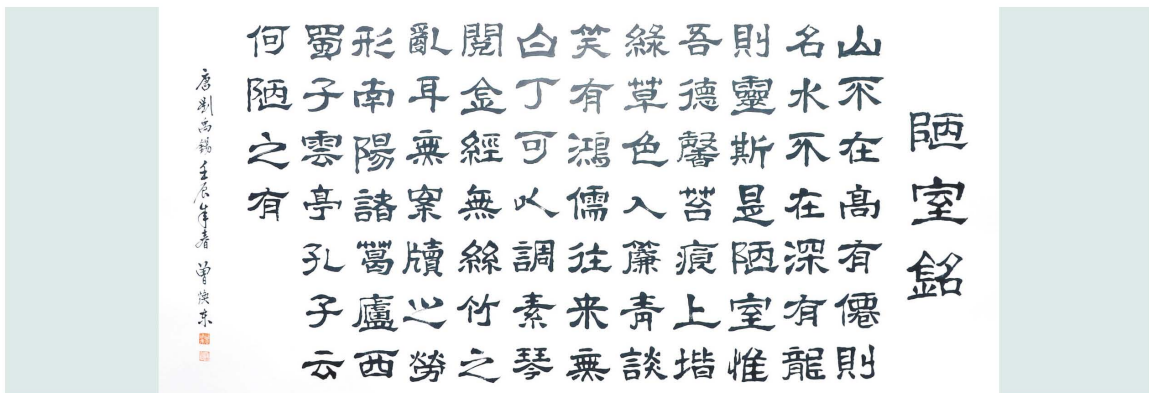 陋室銘
山不在高有僊則
名水不在深有龍
則靈斯是陋室惟
吾德馨苔痕上堦
綠草色入簾青談
笑有鴻儒往来無
白丁可以調素琴
閱金經無絲竹之
亂耳無案牘之勞
形南陽諸葛廬西
蜀子雲亭孔子云
何陋之有
唐劉禹錫壬辰年春 曾